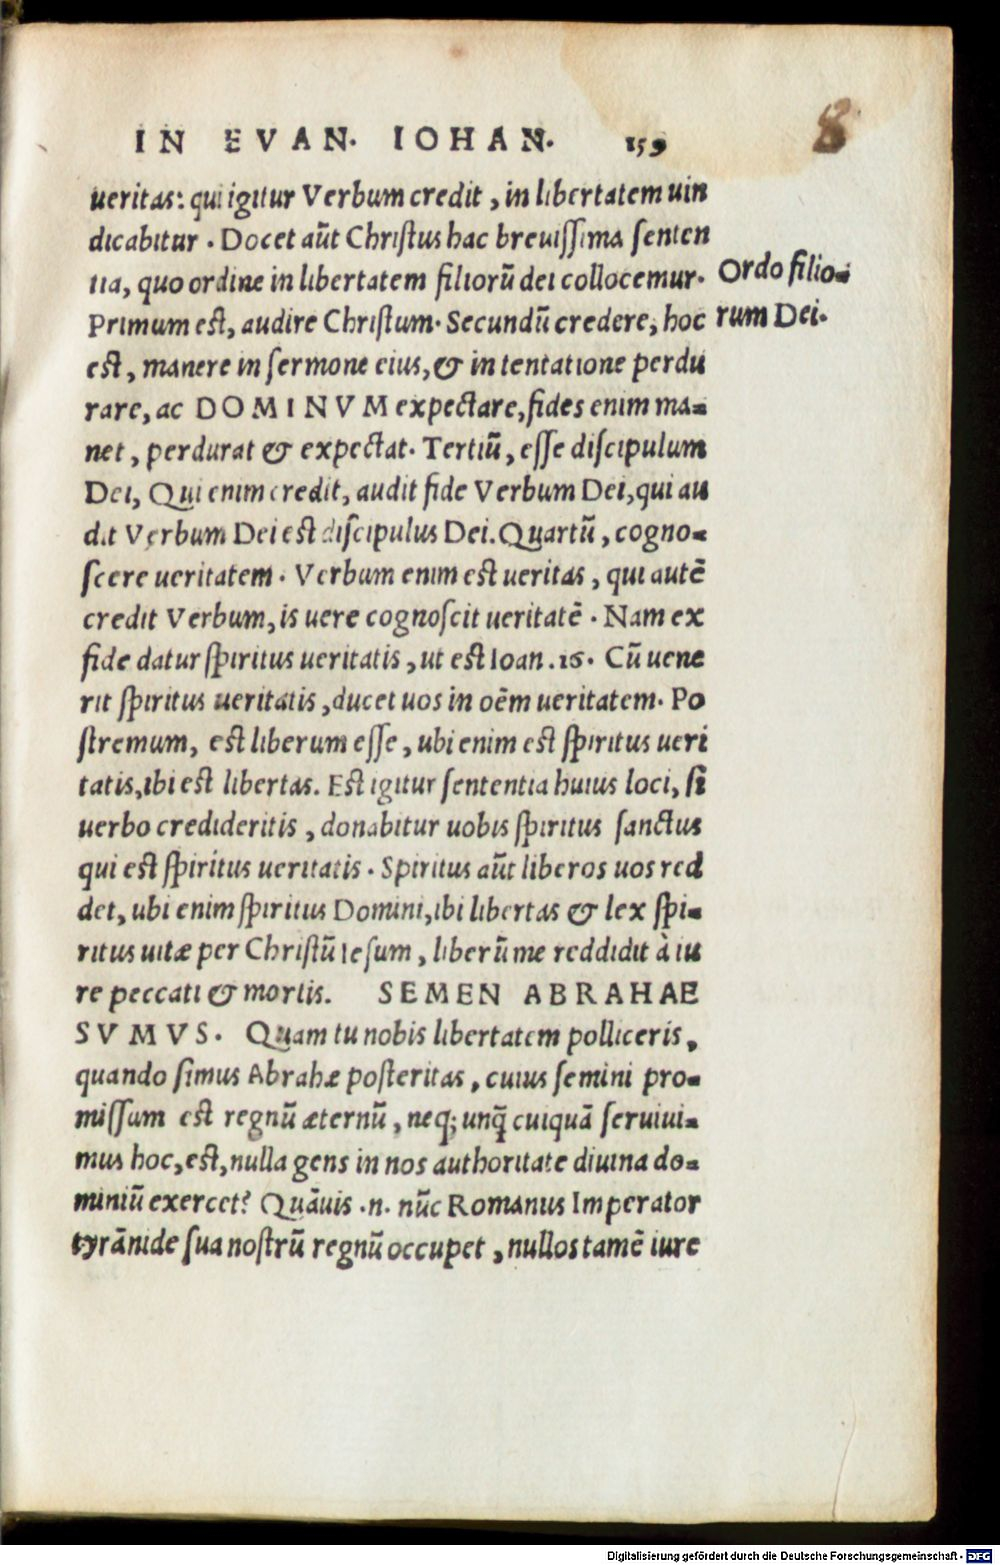 IN EVAN. IOHAN. 159
8
ueritas: qui igitur Verbum credit, in libertatem uin
dicabitur. Docet aũt Christus hac breuissima senten
tia, quo ordine in libertatem filiorũ dei collocemur.
Ordo filio-
Primum est, audire Christum. Secundũ credere, hoc
rum Dei.
est, manere in sermone eius, & in tentatione perdu
rare, ac DOMINVM expectare, fides enim ma-
net, perdurat & expectat. Tertiũ, esse discipulum
Dei, Qui enim credit, audit fide Verbum Dei, qui au
dit Verbum Dei est discipulus Dei. Quartũ, cogno-
scere ueritatem. Verbum enim est ueritas, qui autẽ
credit Verbum, is uere cognoscit ueritatẽ. Nam ex
fide datur spiritus ueritatis, ut est Ioan. 16. Cũ uene
rit spiritus ueritatis, ducet uos in oẽm ueritatem. Po
stremum, est liberum esse, ubi enim est spiritus ueri
tatis, ibi est libertas. Est igitur sententia huius loci, si
uerbo credideritis, donabitur uobis spiritus sanctus
qui est spiritus ueritatis. Spiritus aũt liberos uos red
det, ubi enim spiritus Domini, ibi libertas & lex spi-
ritus uitæ per Christũ Iesum, liberũ me reddidit à iu
re peccati & mortis. SEMEN ABRAHAE
SVMVS. Quam tu nobis libertatem polliceris,
quando simus Abrahæ posteritas, cuius semini pro-
missum est regnũ æternũ, neq; unq̃ cuiquã seruiui-
mus hoc, est, nulla gens in nos authoritate diuina do-
miniũ exercet? Quãuis .n. nũc Romanus Imperator
tyrãnide sua nostrũ regnũ occupet, nullos tamẽ iure
Digitalisierung gefördert durch die Deutsche Forschungsgemeinschaft - DFG